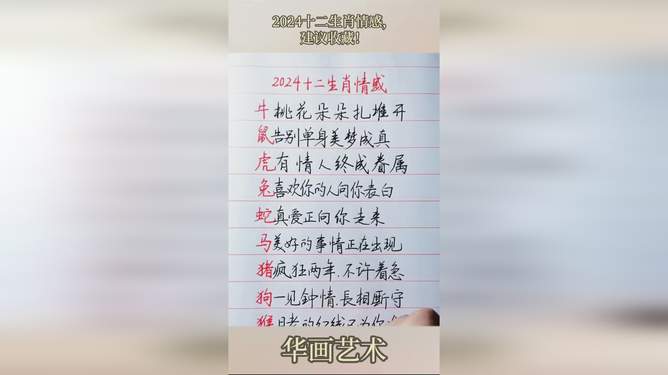 2024十二生肖情感,
建议收藏!
2024十二生肖情感
牛桃花朵朵扎堆开
鼠告别单身美梦成真
虎有情人终成眷属
兔喜欢你的人向你表白
蛇真爱正向你走来
马美好的事情正在出现
猪疯狂两年,不许着急
狗一见钟情,長相厮守
猴月老的红线又为你
华画艺术